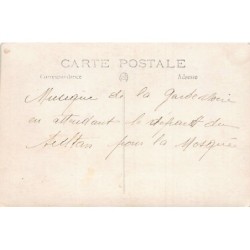 CARTE POSTALE
Correspondance Adresse
Musique de la Garde noire
en attendant le départ du
Sultan pour la Mosquée